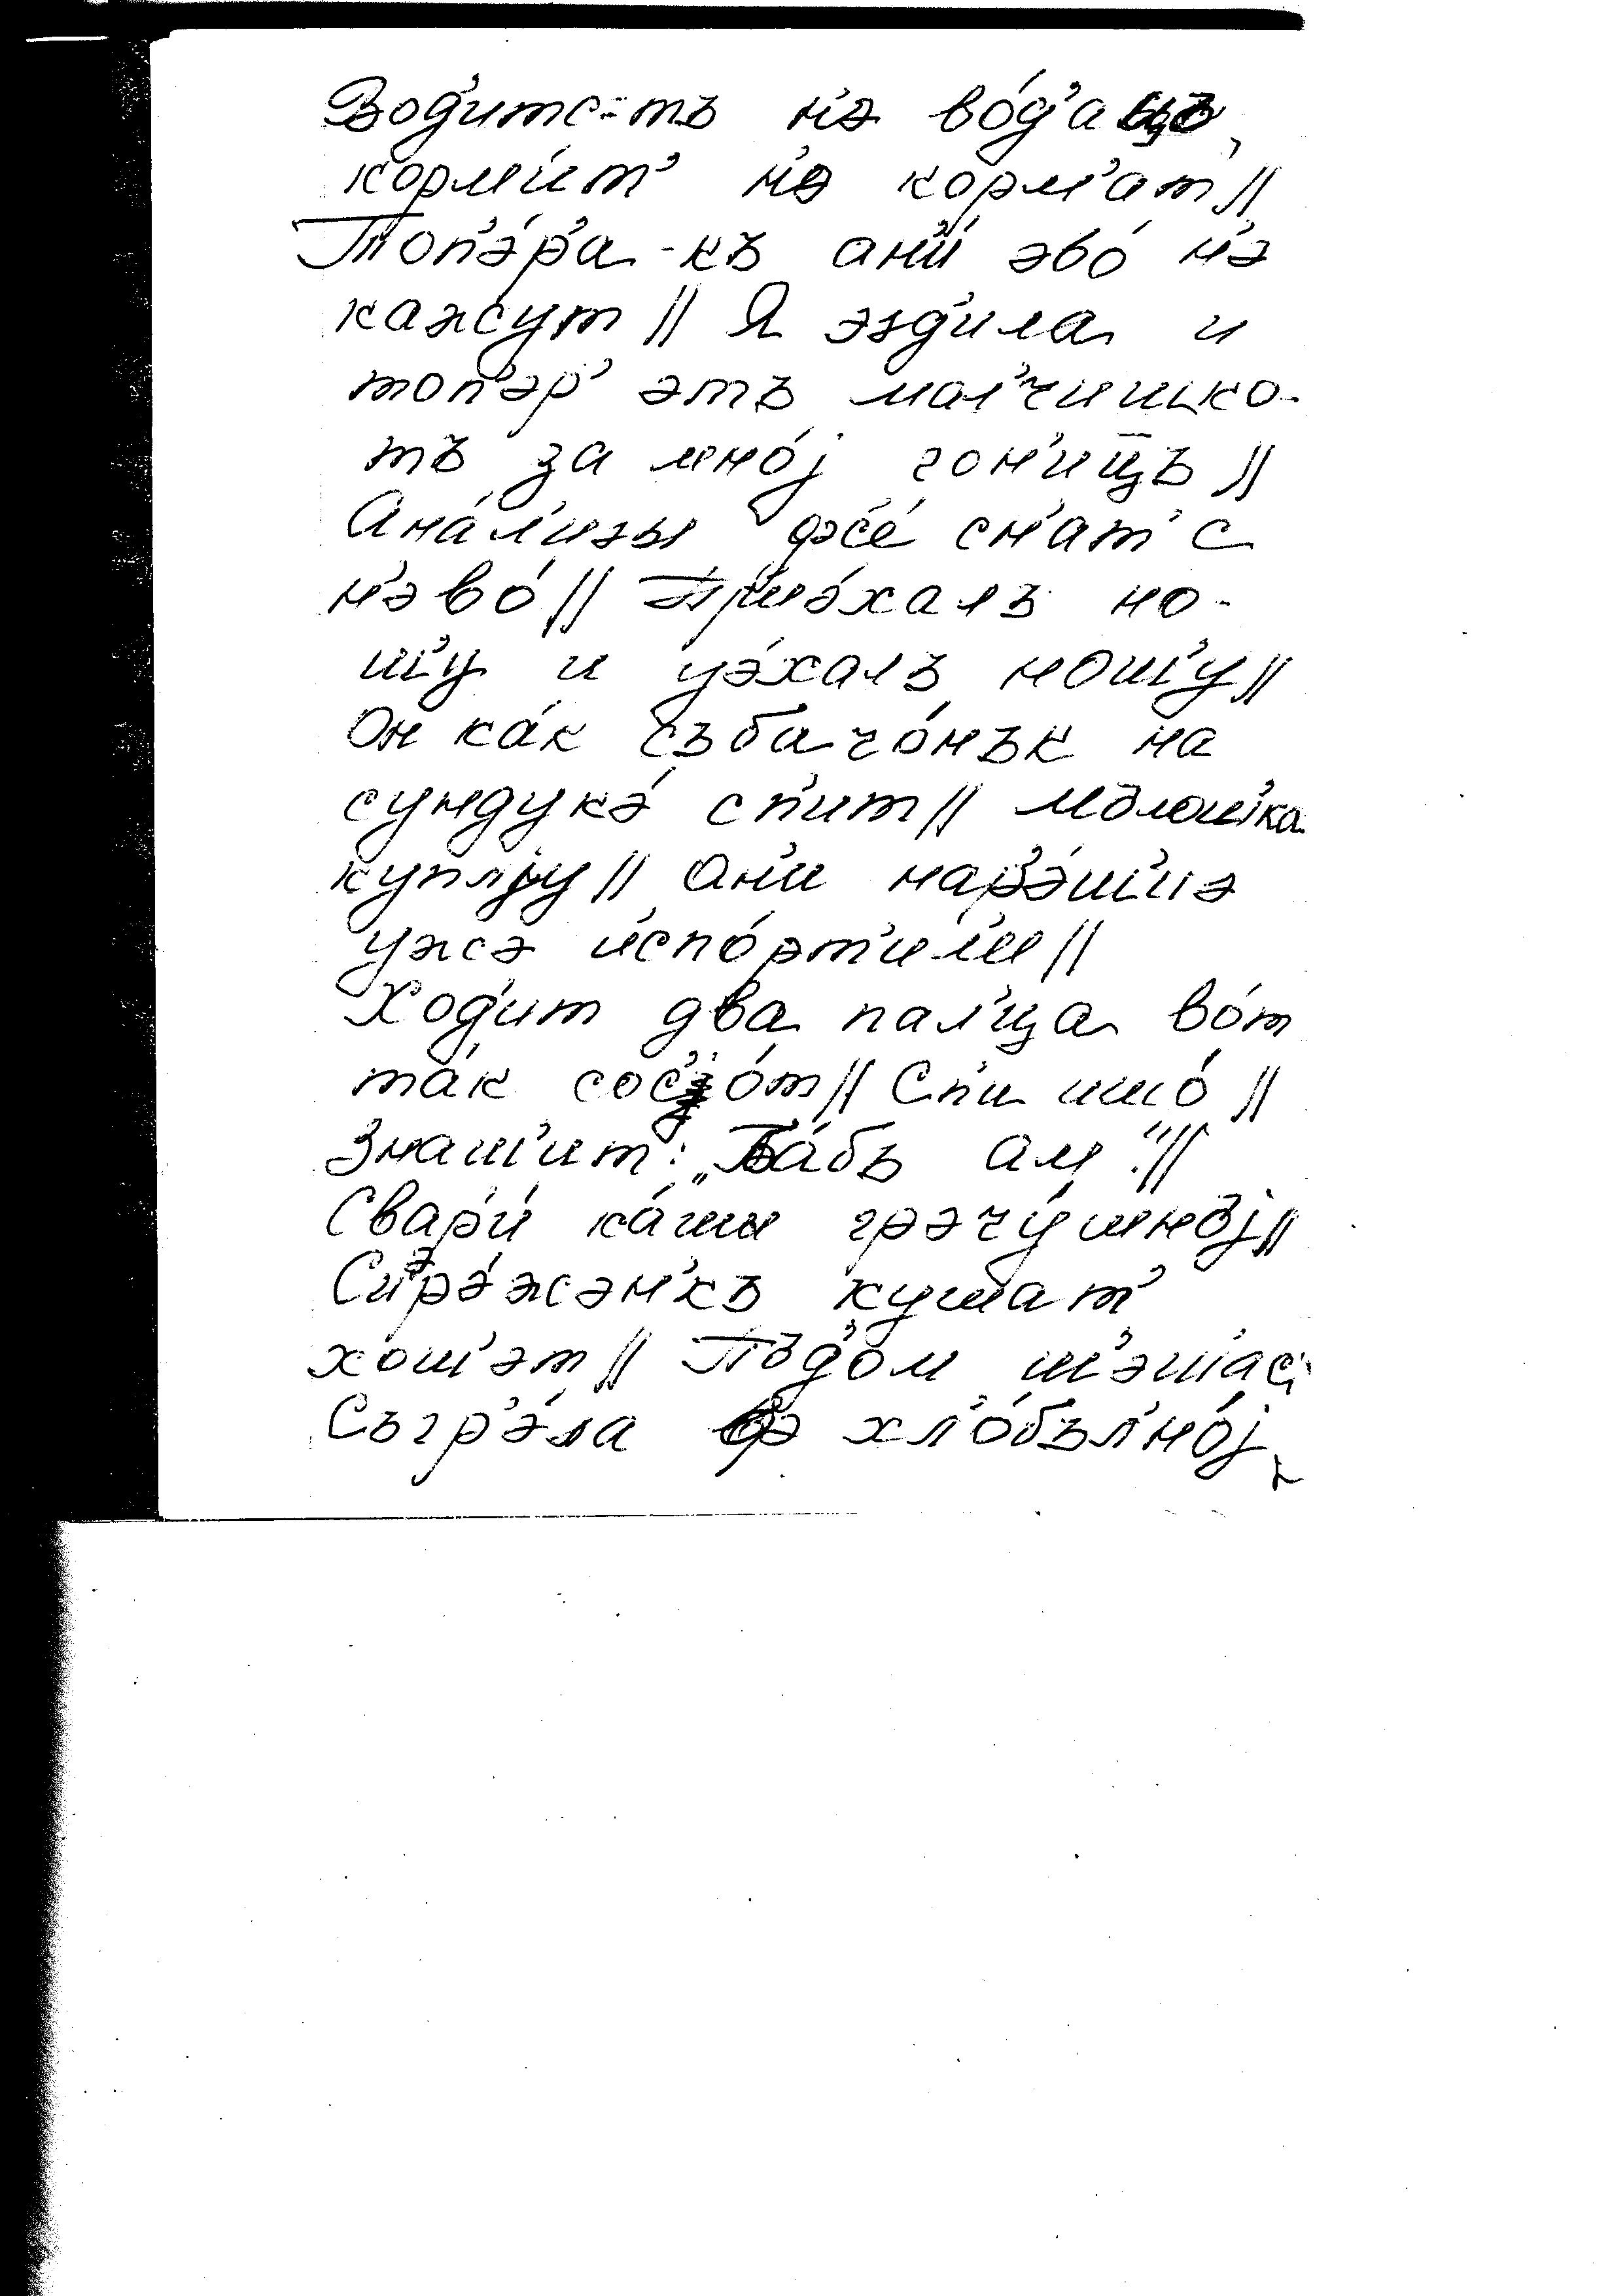 Вод'итс-тъ н'э во́д'ацъ,
корм'и́т' н'э корм'ат //
Топ'э́р'а-къ ан'и́ эво́ н'э
кажут // Я эзд'ила и
топ'эр' этъ мал'чишко-
тъ за мно́ј гон'иц̄ъ //
Ана́л'изы фс'е́ сн'ат' с
н'эво́ // Пр'иэ́халъ но-
ш'у и уэ́халъ нош'у //
Он ка́к събачо́нък на
сундукэ́ сп'ит // Молош'ка
купл'у // Ан'и нар'э́ш'иэ
ужэ испо́рт'ил'и //
Ход'ит два пал'ца во́т
та́к сос'о́т // Сп'и ишо́ //
Знаш'ит: „Ба́бъ ам“. //
Свар'и́ ка́шы грэчу́шној //
С'эр'э́жэн'къ кушат'
хош'эт // Пъд'ом ш'эш'ас,
Съгр'э́ла ф хл'о́бъл'но́ј